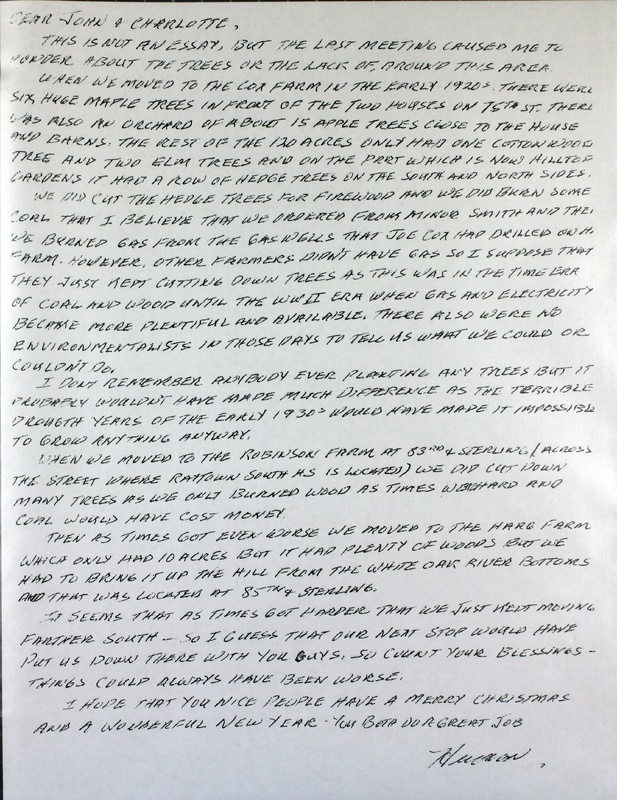 DEAR JOHN & CHARLOTTE,
THIS IS NOT AN ESSAY, BUT THE LAST MEETING CAUSED ME TO
PONDER ABOUT THE TREES OR THE LACK OF, AROUND THIS AREA.
WHEN WE MOVED TO THE COX FARM IN THE EARLY 1920s. THERE WERE
SIX HUGE MAPLE TREES IN FRONT OF THE TWO HOUSES ON 75TH ST. THERE
WAS ALSO AN ORCHARD OF ABOUT 15 APPLE TREES CLOSE TO THE HOUSE
AND BARNS. THE REST OF THE 120 ACRES ONLY HAD ONE COTTON WOOD
TREE AND TWO ELM TREES AND ON THE PART WHICH IS NOW HILLTOP
GARDENS IT HAD A ROW OF HEDGE TREES ON THE SOUTH AND NORTH SIDES.
WE DID CUT THE HEDGE TREES FOR FIREWOOD AND WE DID BURN SOME
COAL THAT I BELIEVE THAT WE ORDERED FROM MINOR SMITH AND THEN
WE BURNED GAS FROM THE GAS WELLS THAT JOE COX HAD DRILLED ON H
FARM. HOWEVER, OTHER FARMERS DIDN'T HAVE GAS SO I SUPPOSE THAT
THEY JUST KEPT CUTTING DOWN TREES AS THIS WAS IN THE TIME ERA
OF COAL AND WOOD UNTIL THE WW II ERA WHEN GAS AND ELECTRICITY
BECAME MORE PLENTIFUL AND AVAILABLE. THERE ALSO WERE NO
ENVIRONMENTALISTS IN THOSE DAYS TO TELL US WHAT WE COULD OR
COULDN'T DO.
I DONT REMEMBER ANYBODY EVER PLANTING ANY TREES BUT IT
PROBABLY WOULDN'T HAVE MADE MUCH DIFFERENCE AS THE TERRIBLE
DROUGTH YEARS OF THE EARLY 1930s WOULD HAVE MADE IT IMPOSSIBLE
TO GROW ANYTHING ANYWAY.
WHEN WE MOVED TO THE ROBINSON FARM AT 83RD & STERLING (ACROSS
THE STREET WHERE RAYTOWN SOUTH HS IS LOCATED) WE DID CUT DOWN
MANY TREES AS WE ONLY BURNED WOOD AS TIMES WERE HARD AND
COAL WOULD HAVE COST MONEY.
THEN AS TIMES GOT EVEN WORSE WE MOVED TO THE HARG FARM
WHICH ONLY HAD 10 ACRES BUT IT HAD PLENTY OF WOODS BUT WE
HAD TO BRING IT UP THE HILL FROM THE WHITE OAK RIVER BOTTOMS
AND THAT WAS LOCATED AT 85TH & STERLING.
IT SEEMS THAT AS TIMES GOT HARPER THAT WE JUST KEPT MOVING
FARTHER SOUTH - SO I GUESS THAT OUR NEXT STOP WOULD HAVE
PUT US DOWN THERE WITH YOU GUYS. SO COUNT YOUR BLESSINGS -
THINGS COULD ALWAYS HAVE BEEN WORSE.
I HOPE THAT YOU NICE PEOPLE HAVE A MERRY CHRISTMAS
AND A WONDERFUL NEW YEAR - YOU BOTH DO A GREAT JOB